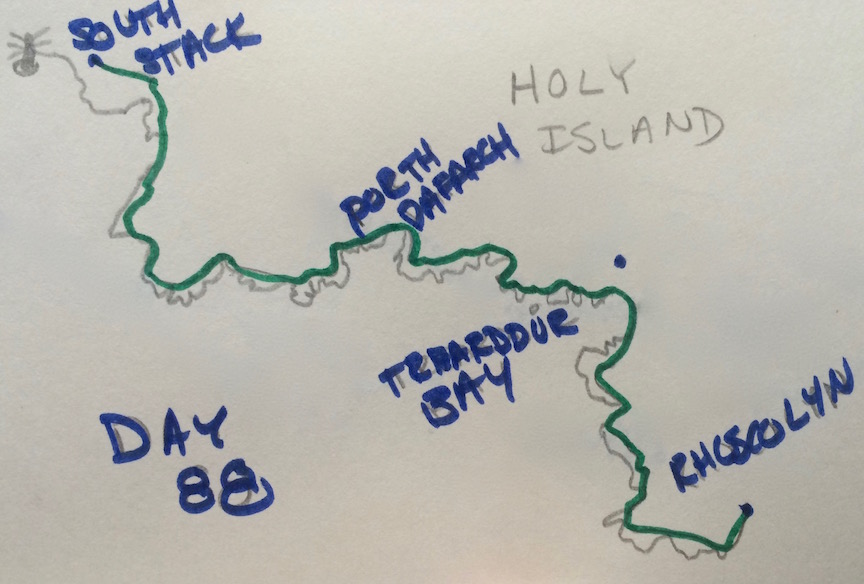 SOUTH
STACK
HOLY
ISLAND
PORTH
DAFARCH
TREARDDUR
BAY
RHOSCOLYN
DAY
88